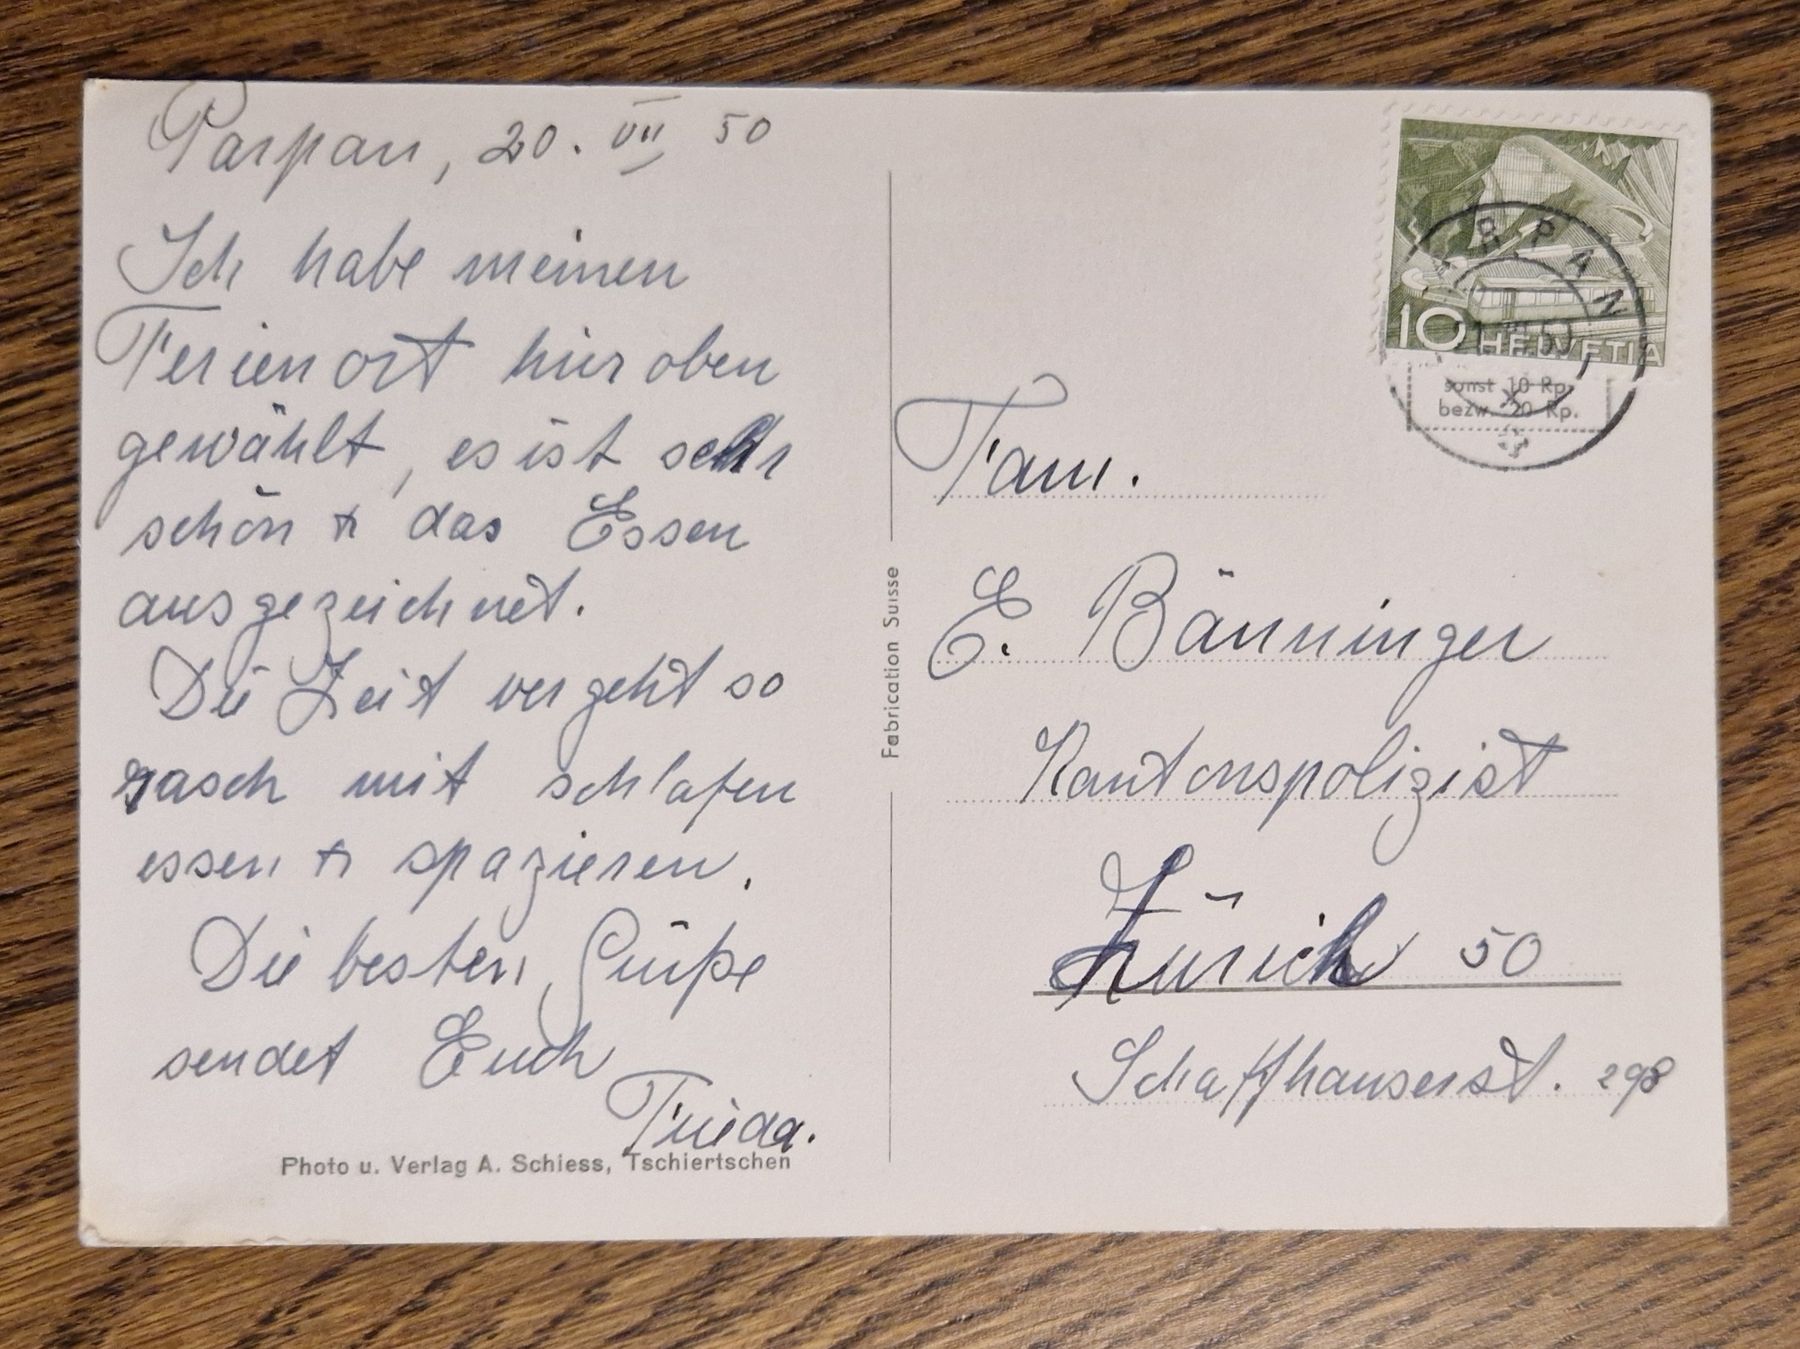 Parpan, 20. VII 50
Ich habe meinen
Ferienort hier oben
gewählt, es ist sehr
schön + das Essen
ausgezeichnet.
Die Zeit vergeht so
rasch mit schlafen
essen + spazieren.
Die besten Grüße
sendet Euch
Frieda.
Photo u. Verlag A. Schiess, Tschiertschen
Fabrication Suisse
10 HELVETIA
PARPAN
sonst 10 Rp.
bezw. 20 Rp.
Fam.
E. Bänninger
Kantonspolizist
Zürich 50
Schaffhauserst. 298